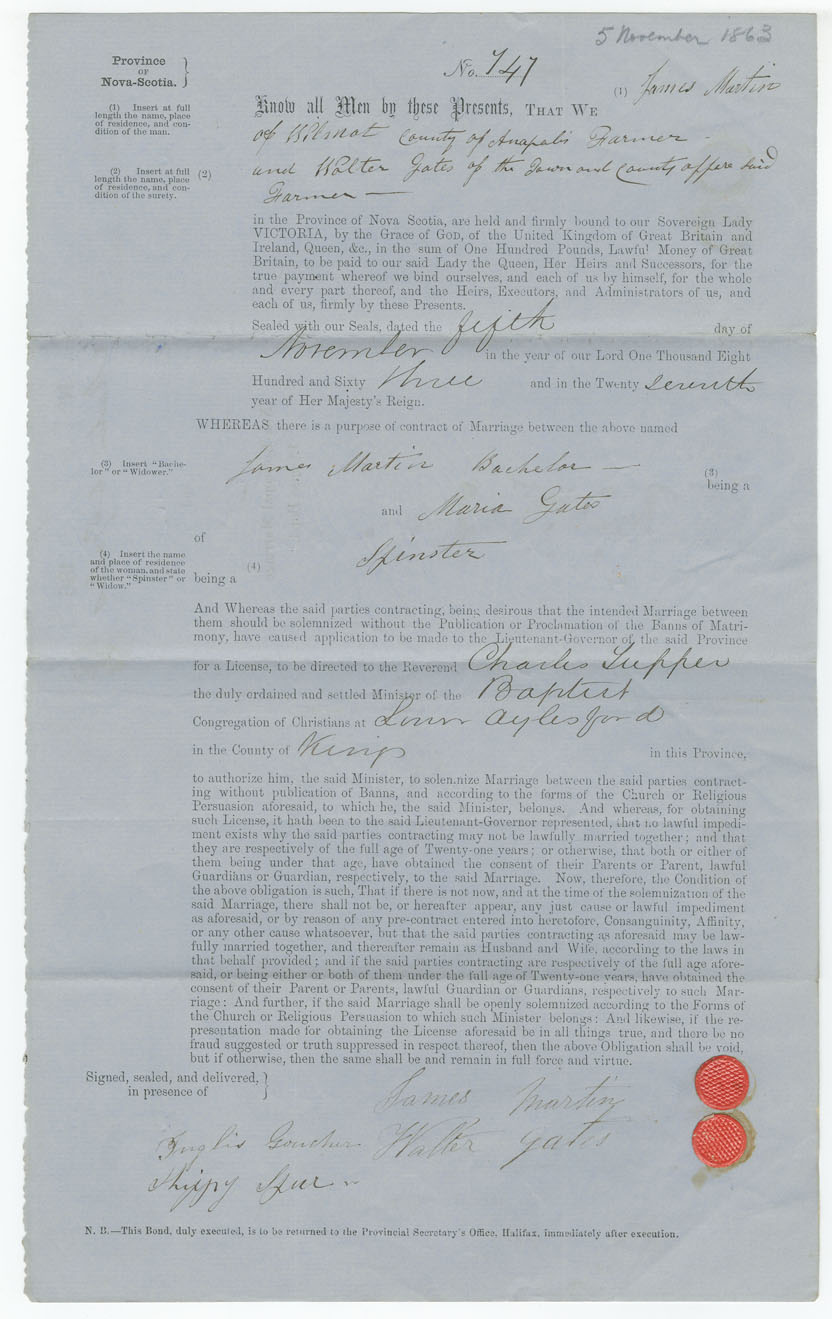 5 November 1863
Province
OF
Nova-Scotia. }
No. 747
(1) Insert at full
length the name, place
of residence, and con-
dition of the man.
(1) James Martin
Know all Men by these Presents, THAT WE
of Wilmot County of Anapolis Farmer -
(2) Insert at full
length the name, place
of residence, and con-
dition of the surety.
(2) and Walter Gates of the Town and County affore said
Farmer —
in the Province of Nova Scotia, are held and firmly bound to our Sovereign Lady
VICTORIA, by the Grace of GOD, of the United Kingdom of Great Britain and
Ireland, Queen, &c., in the sum of One Hundred Pounds, Lawful Money of Great
Britain, to be paid to our said Lady the Queen, Her Heirs and Successors, for the
true payment whereof we bind ourselves, and each of us by himself, for the whole
and every part thereof, and the Heirs, Executors, and Administrators of us, and
each of us, firmly by these Presents.
Sealed with our Seals, dated the fifth day of
November in the year of our Lord One Thousand Eight
Hundred and Sixty three and in the Twenty seventh
year of Her Majesty's Reign.
WHEREAS there is a purpose of contract of Marriage between the above named
(3) Insert "Bache-
lor" or "Widower."
James Martin Bachelor —
(3)
being a
and Maria Gates
of
(4) Insert the name
and place of residence
of the woman, and state
whether "Spinster" or
"Widow."
Spinster
(4)
being a
And Whereas the said parties contracting, being desirous that the intended Marriage between
them should be solemnized without the Publication or Proclamation of the Banns of Matri-
mony, have caused application to be made to the Lieutenant-Governor of the said Province
for a License, to be directed to the Reverend Charles Tupper
the duly ordained and settled Minister of the Baptist
Congregation of Christians at Lower Aylesford
in the County of Kings in this Province,
to authorize him, the said Minister, to solemnize Marriage between the said parties contract-
ing without publication of Banns, and according to the forms of the Church or Religious
Persuasion aforesaid, to which he, the said Minister, belongs. And whereas, for obtaining
such License, it hath been to the said Lieutenant-Governor represented, that no lawful impedi-
ment exists why the said parties contracting may not be lawfully married together; and that
they are respectively of the full age of Twenty-one years; or otherwise, that both or either of
them being under that age, have obtained the consent of their Parents or Parent, lawful
Guardians or Guardian, respectively, to the said Marriage. Now, therefore, the Condition of
the above obligation is such, That if there is not now, and at the time of the solemnization of the
said Marriage, there shall not be, or hereafter appear, any just cause or lawful impediment
as aforesaid, or by reason of any pre-contract entered into heretofore, Consanguinity, Affinity,
or any other cause whatsoever, but that the said parties contracting as aforesaid may be law-
fully married together, and thereafter remain as Husband and Wife, according to the laws in
that behalf provided; and if the said parties contracting are respectively of the full age afore-
said, or being either or both of them under the full age of Twenty-one years, have obtained the
consent of their Parent or Parents, lawful Guardian or Guardians, respectively to such Mar-
riage: And further, if the said Marriage shall be openly solemnized according to the Forms of
the Church or Religious Persuasion to which such Minister belongs: And likewise, if the re-
presentation made for obtaining the License aforesaid be in all things true, and there be no
fraud suggested or truth suppressed in respect thereof, then the above Obligation shall be void,
but if otherwise, then the same shall be and remain in full force and virtue.
Signed, sealed, and delivered, }
in presence of
James Martin
Inglis Goucher Walter Gates
Shippy Spur
N. B.—This Bond, duly executed, is to be returned to the Provincial Secretary's Office, Halifax, immediately after execution.